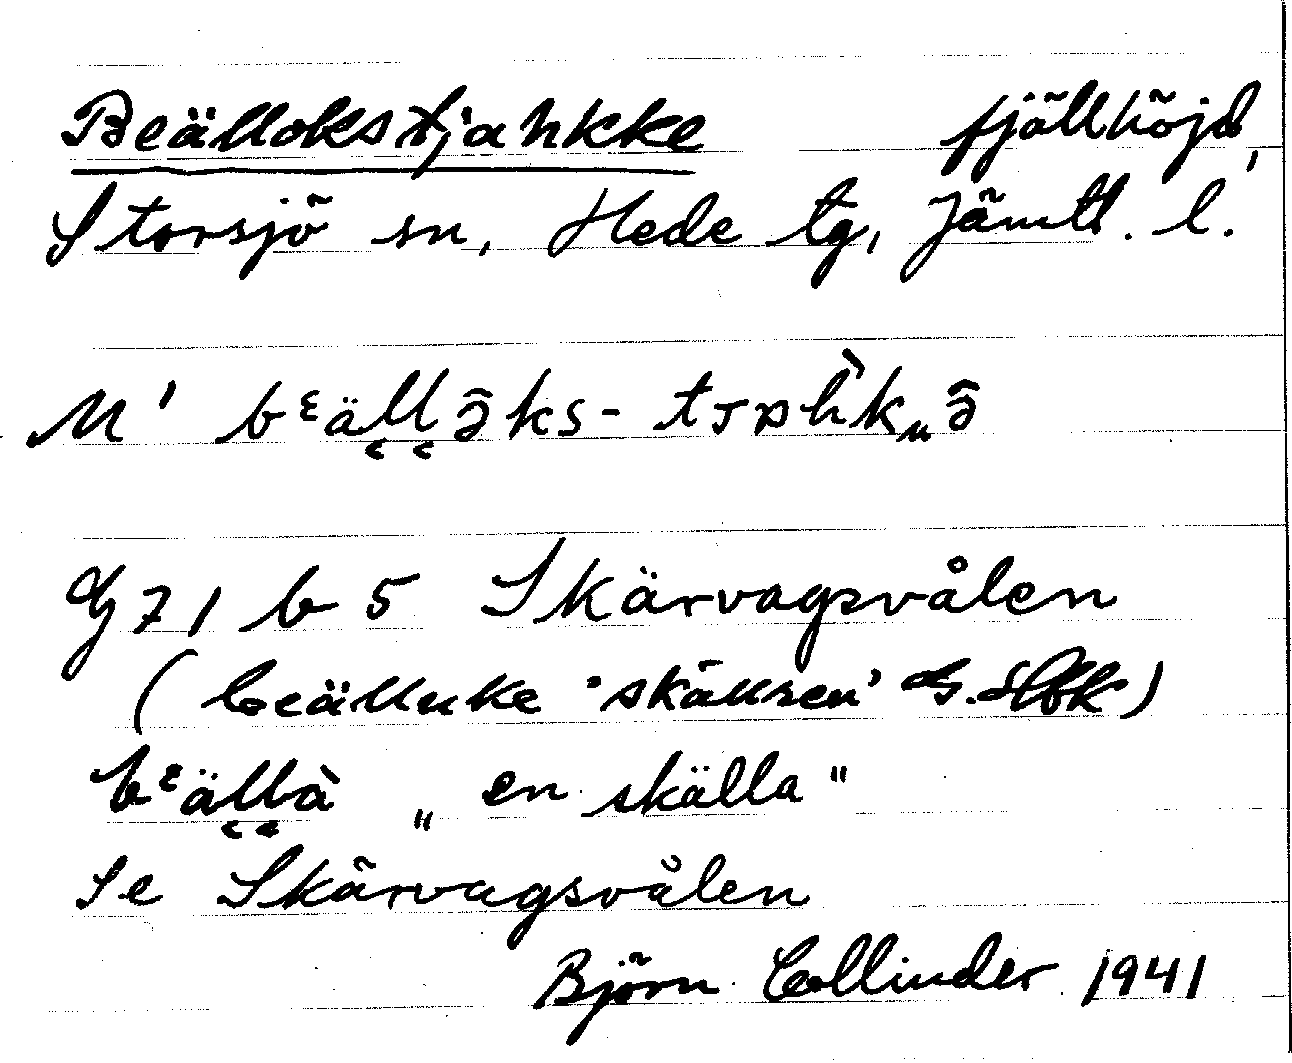 Beällokstjahkke fjällhöjd,
Storsjö sn, Hede tg, Jämtl. l.
M' bᵋäl̯l̯ə̑ks-
G 71 b 5 Skärvagsvålen
(beälluke 'skällsen'
bᵋäl̯l̯à „en skälla"
Se Skärvagsvålen
Björn Collinder 1941